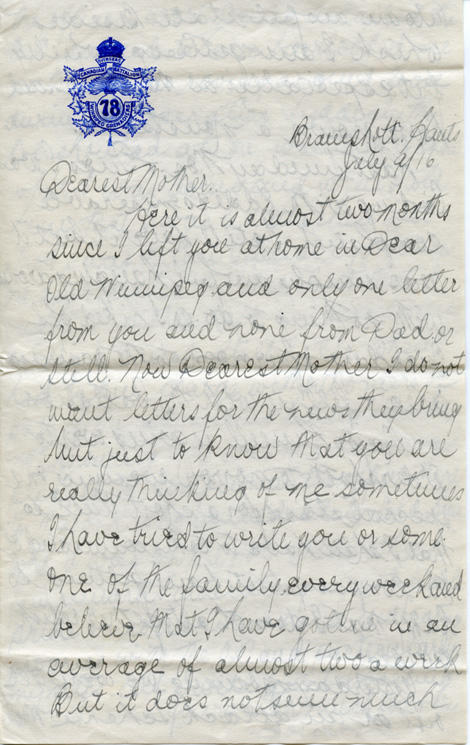 OVERSEAS
CANADIAN BATTALION
78
WINNIPEG GRENADIERS
Bramshott. Hants
July 9/16
Dearest Mother.
Here it is almost two months
since I left you at home in Dear
Old Winnipeg and only one letter
from you and none from Dad or
still. Now Dearest Mother I do not
want letters for the news they bring
but just to know that you are
really thinking of me sometimes
I have tried to write you or some
one of the family every week and
believe that I have gotten in an
average of almost two a week
But it does not seem much